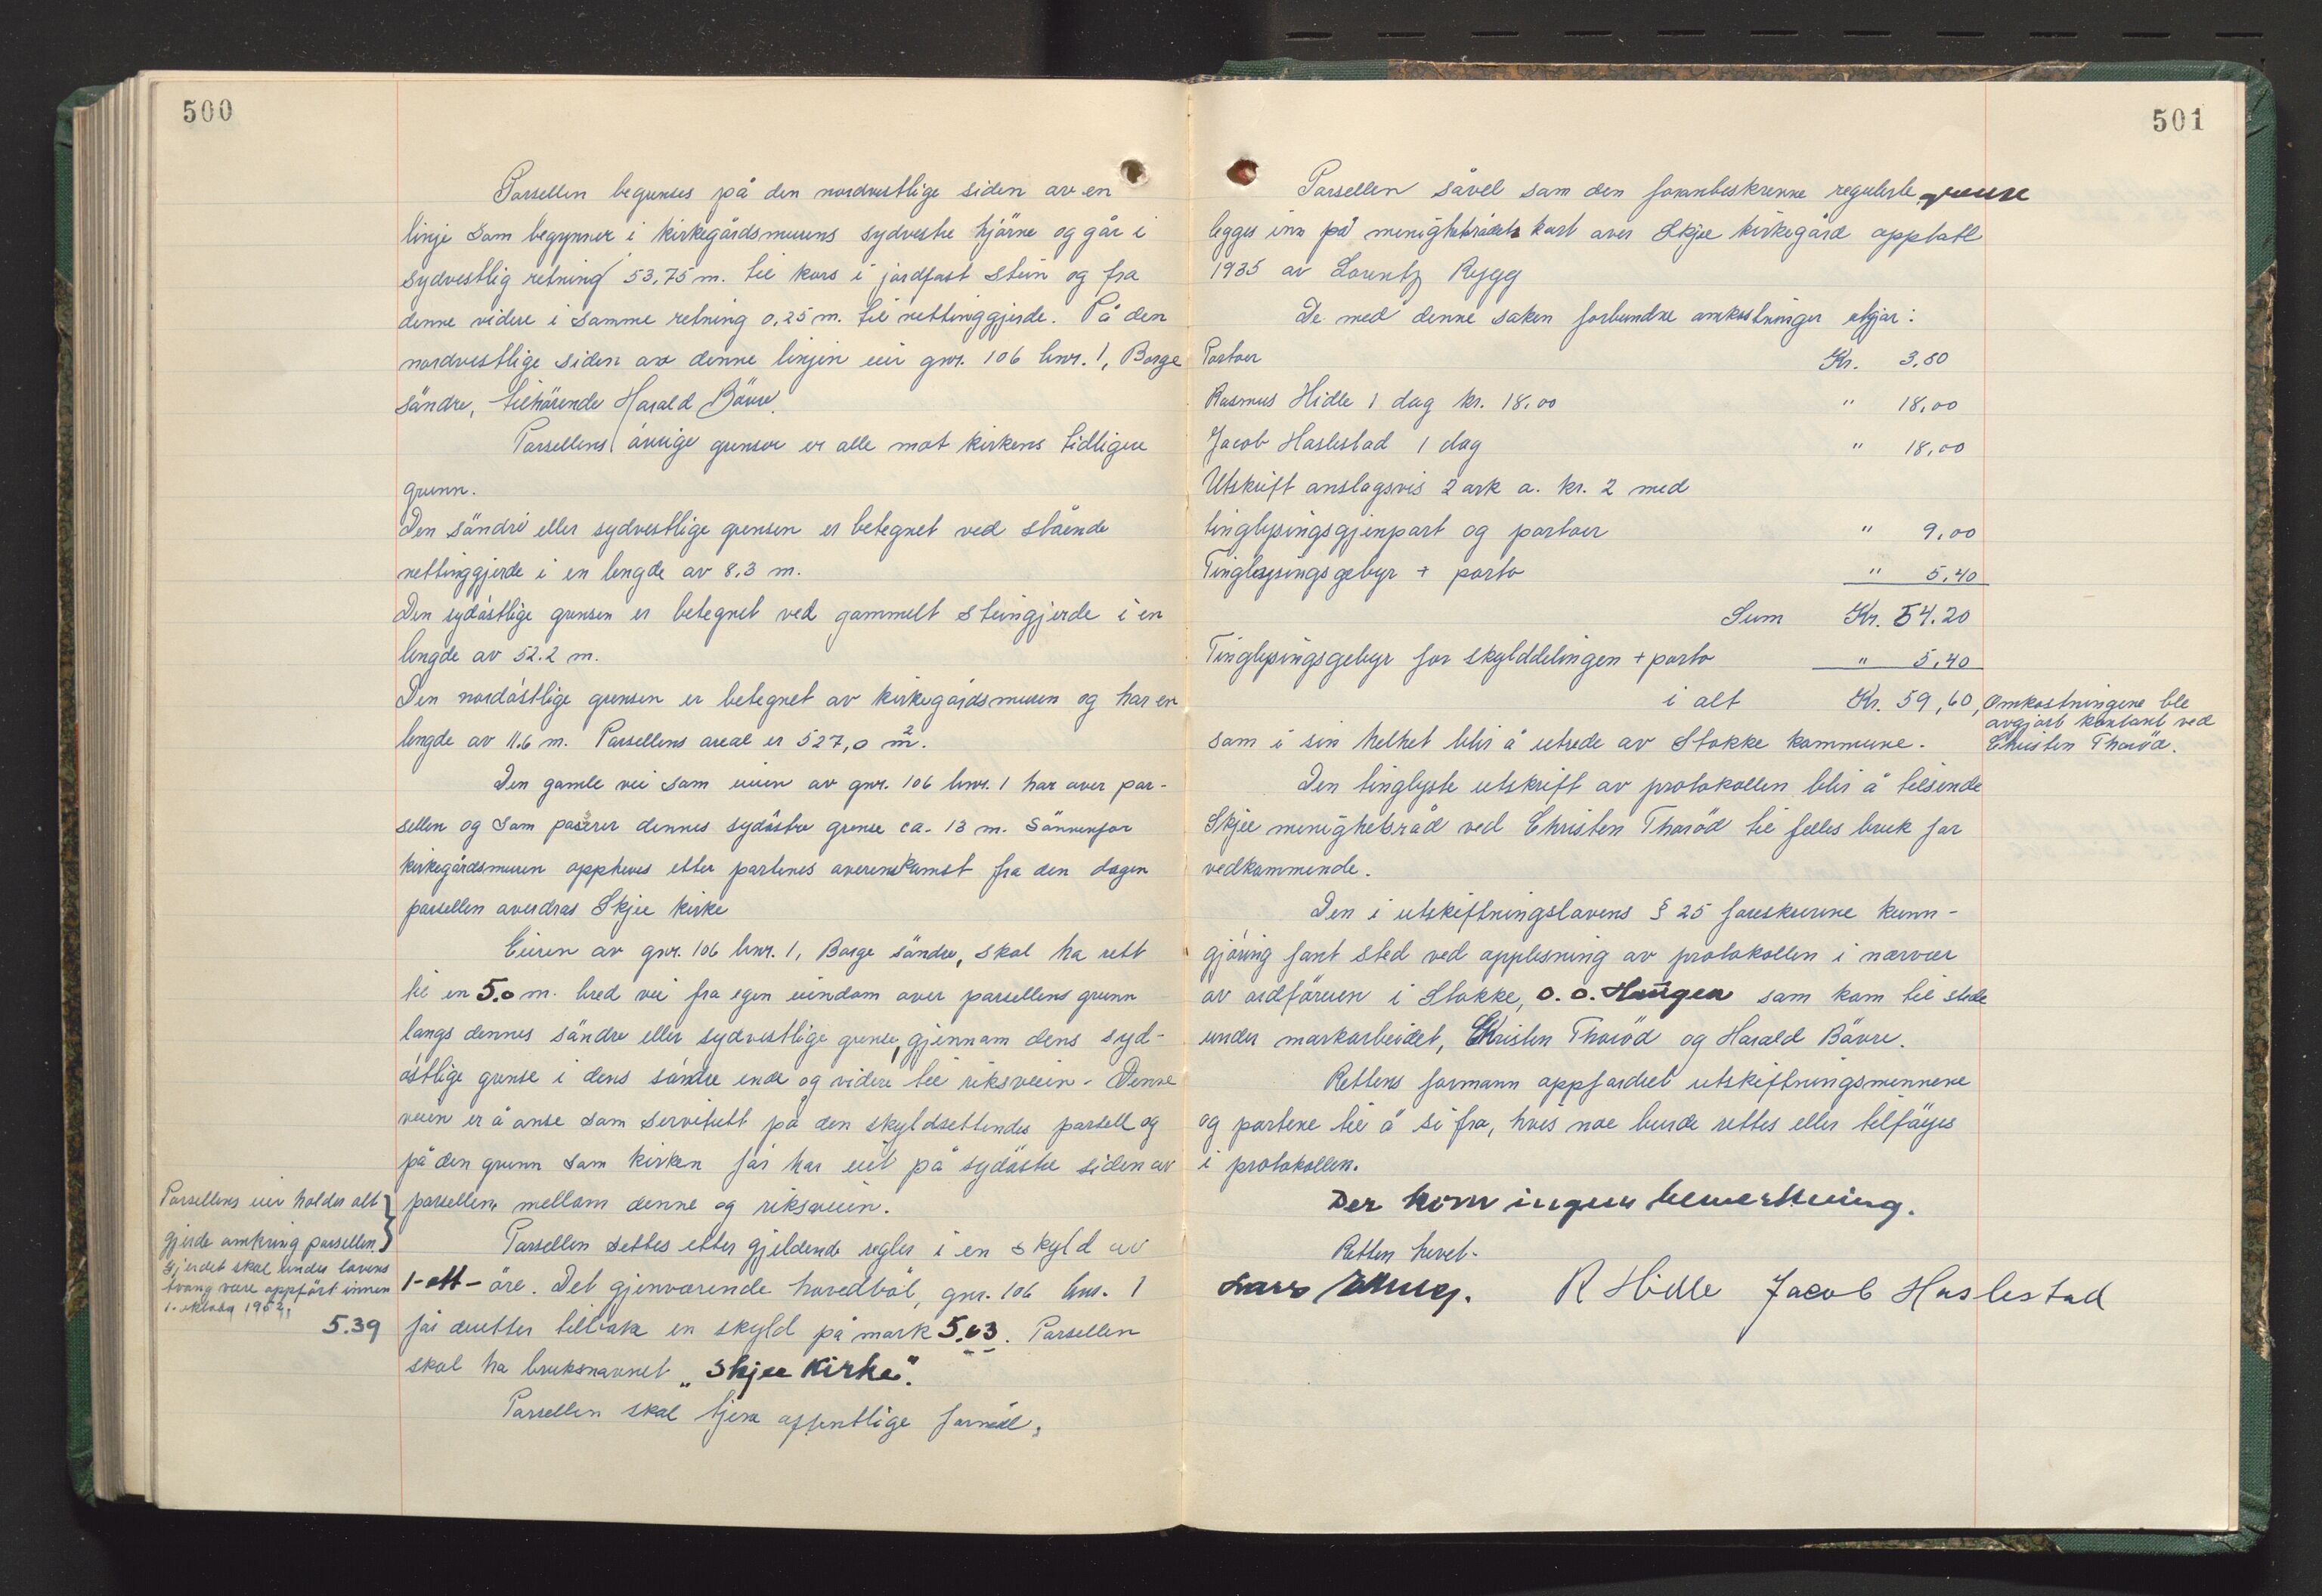 500
Parsellen begrenses på den nordvestlige siden av en
linje som begynner i kirkegårdsmurens sydvestre hjörne og går i
sydvestlig retning 53,75 m. til kors i jordfast stein og fra
denne videre i samme retning 0,25 m. til nettinggjerde. På den
nordvestlige siden av denne linjen eier gnr. 106 bnr. 1, Borge
söndre, tilhörende Harald Bövre.
Parsellens övrige grenser er alle mot kirkens tidligere
grunn.
Den söndre eller sydvestlige grensen er betegnet ved stående
nettinggjerde i en lengde av 8,3 m.
Den sydöstlige grensen er betegnet ved gammelt steingjerde i en
lengde av 52.2 m.
Den nordöstlige grensen er betegnet av kirkegårdsmuren og har en
lengde av 11.6 m. Parsellens areal er 527,0 m².
Den gamle vei som eieren av gnr. 106 bnr. 1 har over par-
sellen og som passerer dennes sydöstre grense ca. 13 m. sönnenfor
kirkegårdsmuren oppheves etter partenes overenskomst fra den dagen
parsellen overdras Skjee kirke
Eieren av gnr. 106 bnr. 1, Borge söndre, skal ha rett
til en 5.0 m. bred vei fra egen eiendom over parsellens grunn
langs dennes söndre eller sydvestlige grense, gjennom dens syd-
östlige grense i dens söndre ende og videre til riksveien. Denne
veien er å anse som servitutt på den skyldsettendes parsell og
på den grunn som kirken för har eiet på sydöstre siden av
Parsellens eier holder alt
parsellen, mellom denne og riksveien.
gjerde omkring parsellen.
Gjerdet skal under lovens
tvang være oppfört innen
1. oktober 1952.
Parsellen settes etter gjeldende regler i en skyld av
1-ett- öre. Det gjenværende hovedböl, gnr. 106 bnr. 1
5.39
får deretter tilbake en skyld på mark 5.63. Parsellen
skal ha bruksnavnet „Skjee Kirke".
Parsellen skal tjene offentlige formål.
501
Parsellen såvel som den foranbeskrevne regulerte grense
legges inn på menighetsrådets kart over Skjee kirkegård opptatt
1935 av Lorentz Rygg
De med denne saken forbundne omkostninger utgjør:
Portoer Kr. 3.80
Rasmus Hidle 1 dag kr. 18.00 " 18,00
Jacob Haslestad 1 dag " 18,00
Utskrift anslagsvis 2 ark a. kr. 2 med
tinglysingsgjenpart og portoer " 9,00
Tinglysingsgebyr + porto " 5,40
Sum Kr. 54.20
Tinglysingsgebyr for skylddelingen + porto " 5,40
i alt Kr. 59,60,
Omkostningene ble
avgjort kontant ved
Christen Thoröd.
som i sin helhet blir å utrede av Stokke kommune.
Den tinglyste utskrift av protokollen blir å tilsende
Skjee menighetsråd ved Christen Thoröd til felles bruk for
vedkommende.
Den i utskiftningslovens § 25 foreskrevne kunn-
gjöring fant sted ved opplesning av protokollen i nærvær
av ordföreren i Stokke, O. O. Haugen som kom til stede
under markarbeidet, Christen Thoröd og Harald Bövre.
Rettens formann oppfordret utskiftningsmennene
og partene til å si fra, hvis noe burde rettes eller tilföyes
i protokollen.
Der kom ingen bemerkning.
Retten hevet.
Lars R Hidle Jacob Haslestad